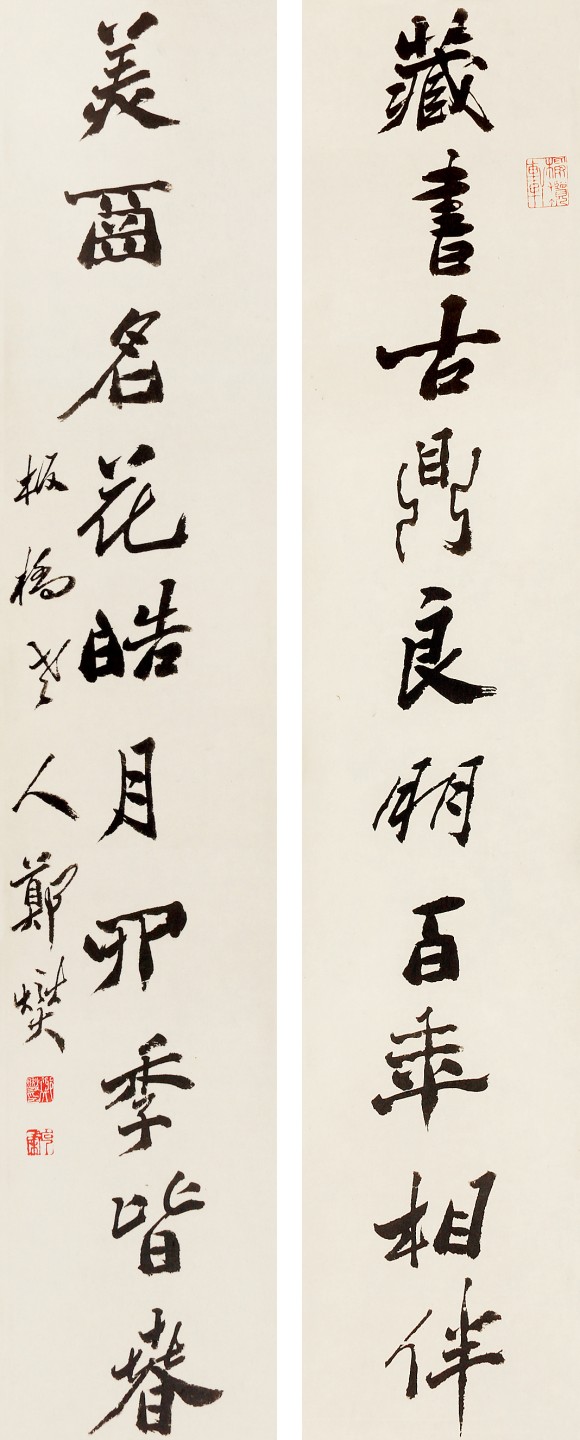 藏書古鼎良朋百年相伴
美画名花皓月四季皆春
板橋老人鄭燮
橄欖軒